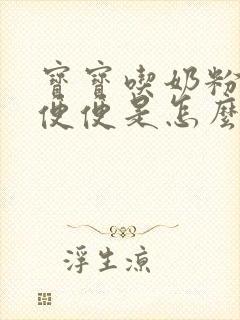 寶寶喫奶粉
便便是怎麼
浮生涼